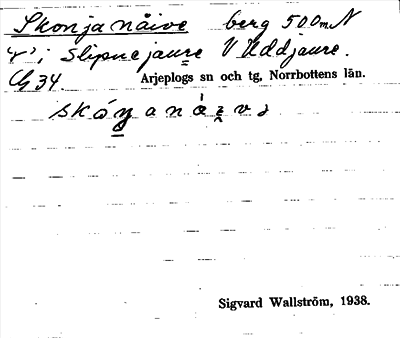 Skonjanåive berg 500m N
"r" i Slipnejaure V Uddjaure.
G 34. Arjeplogs sn och tg, Norrbottens län.
Sigvard Wallström, 1938.